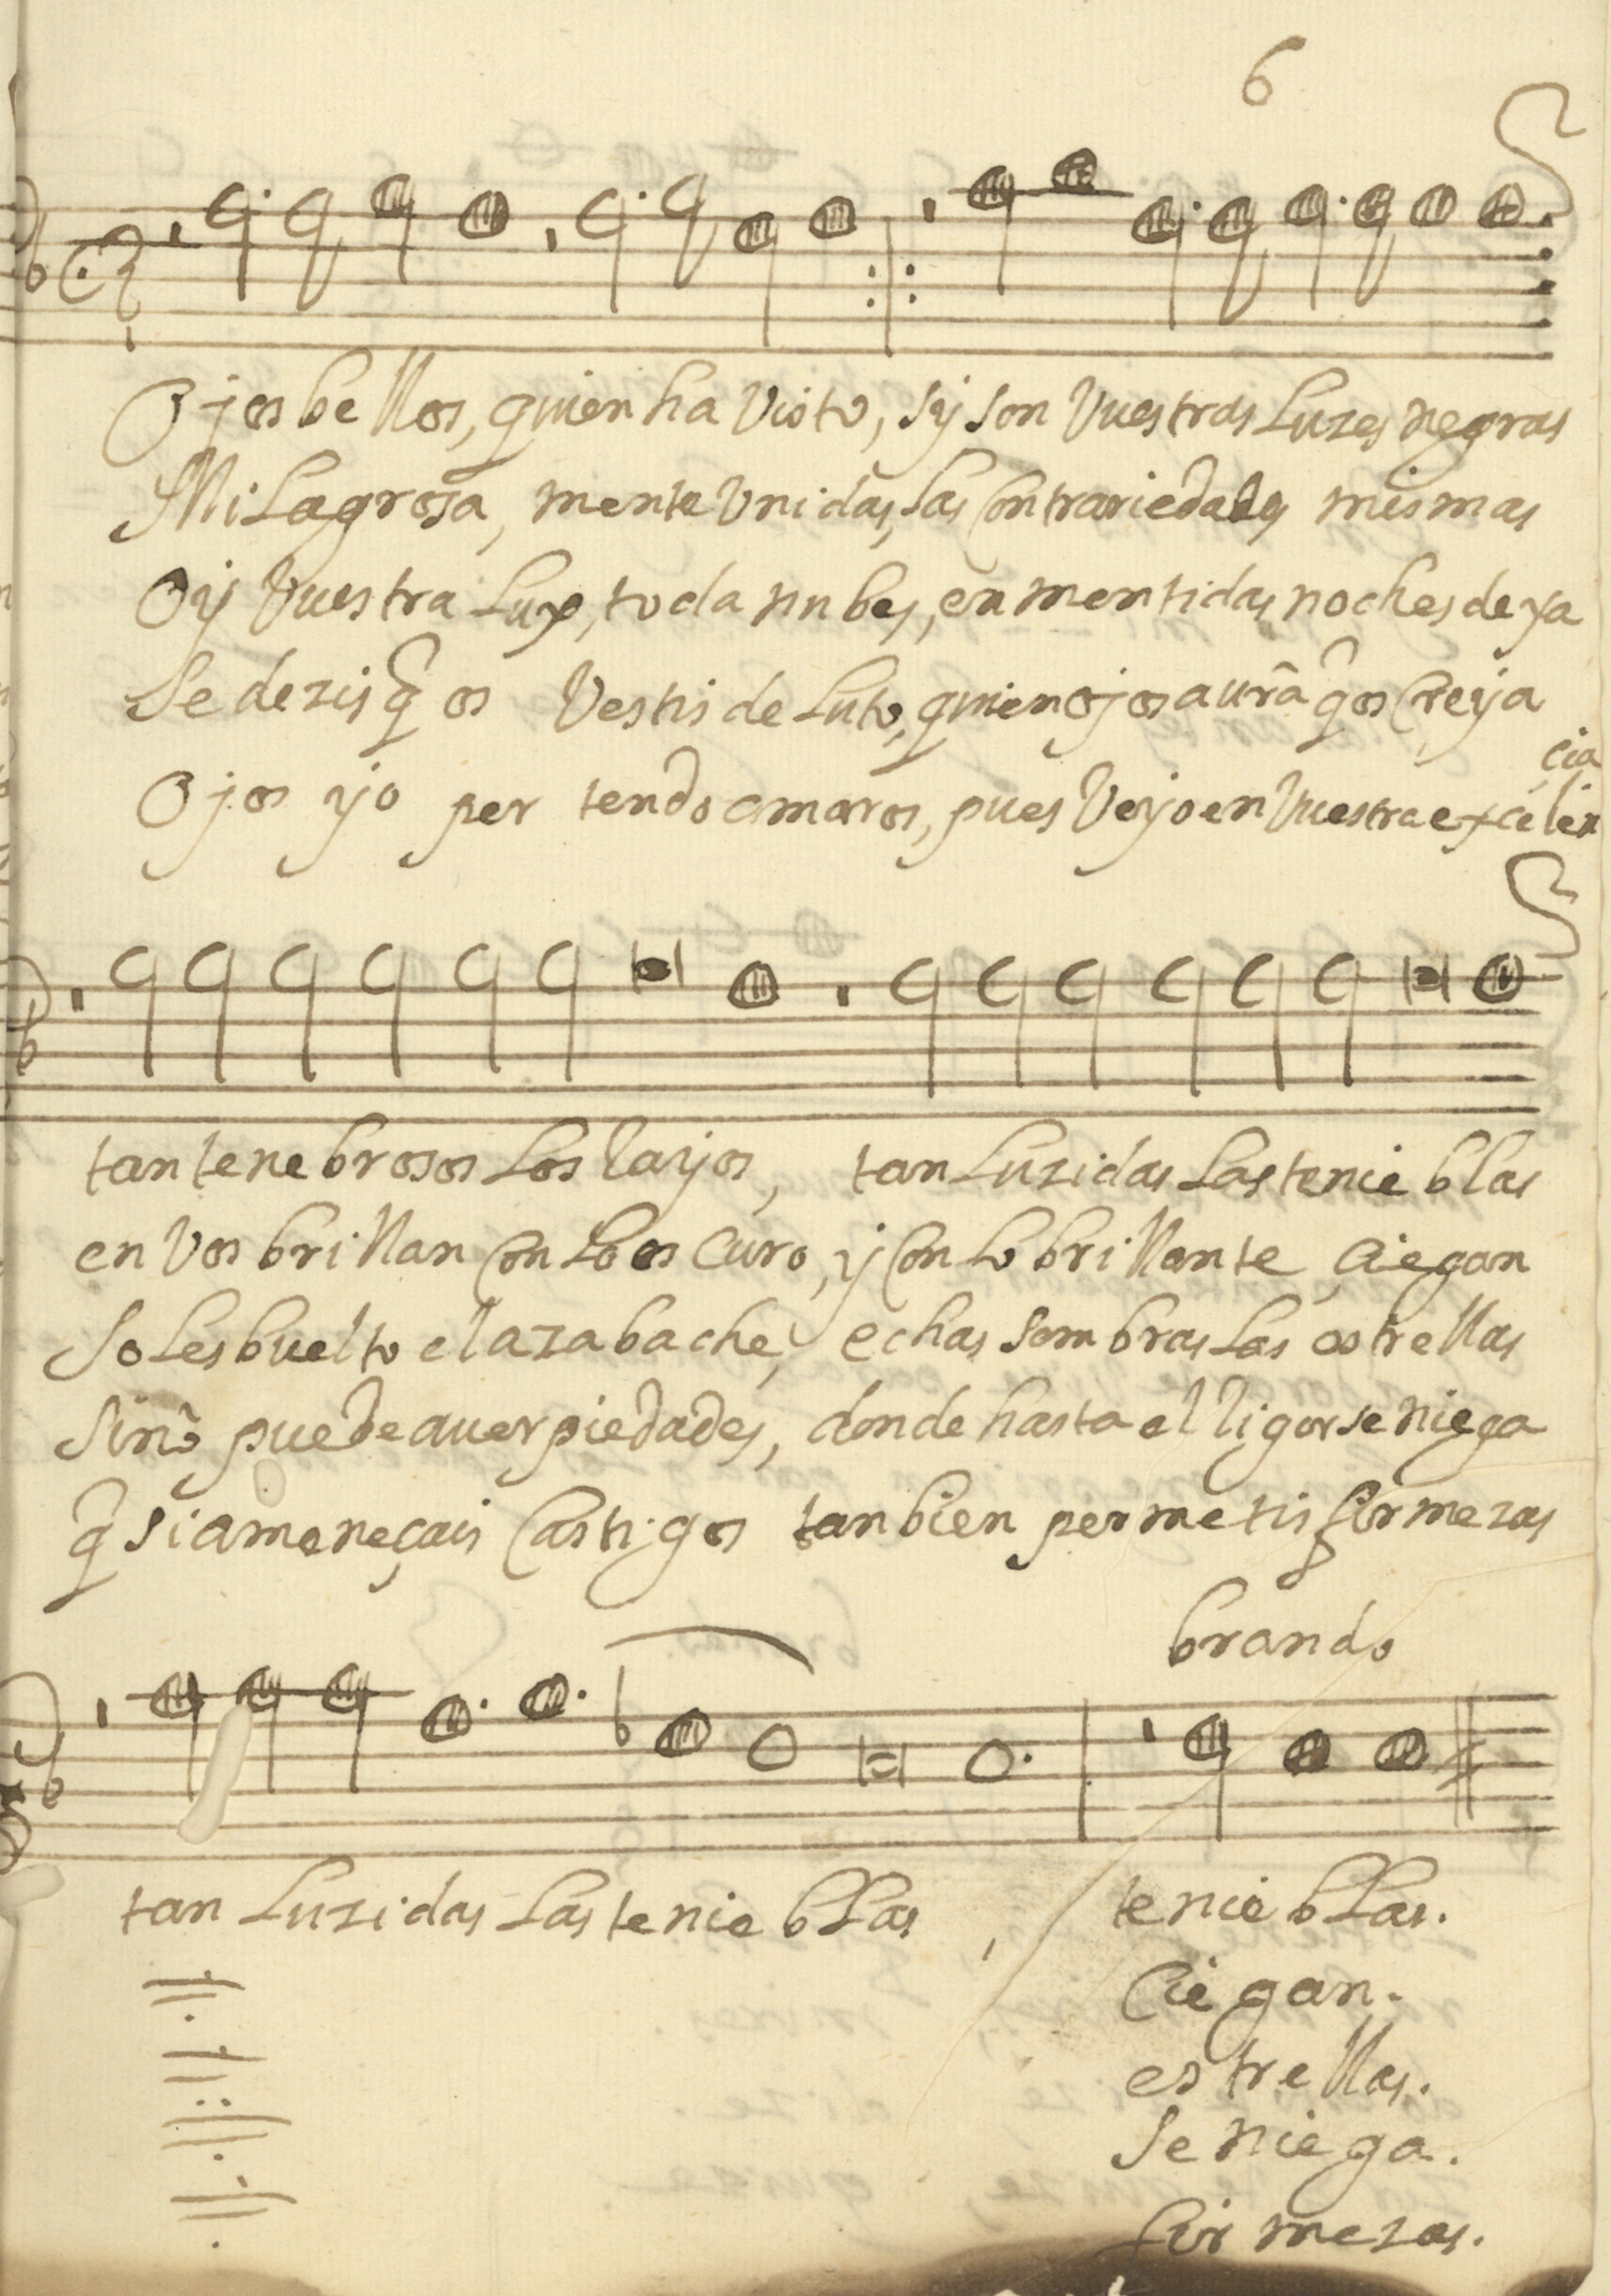 6
Ojos bellos, quien ha visto, sy son vuestras luzes negras
Milagrosa, mente unidas, las contrariedades mismas
Oy vuestra luz, toda nubes, en mentidas noches deya
Se dezis q̃ os vestis de luto, quien ojos aurã q̃ os creya
cia
Ojos yo per tendo amaros, pues veyo en vuestra excelen
tan tenebrosos los rayos, tan luzidas las tenieblas
en vos brillan con lo oscuro, y con lo brillante, ciegan
Soles buelto el azabache, echas sombras las estrellas
Sinõ puede aver piedades, donde hasta el rigor se niega
q̃ si ameneçais castigos tanbien permetis firmezas
brando
tan luzidas las tenieblas, tenieblas.
Ciegan.
estrellas.
Se niega.
firmezas.